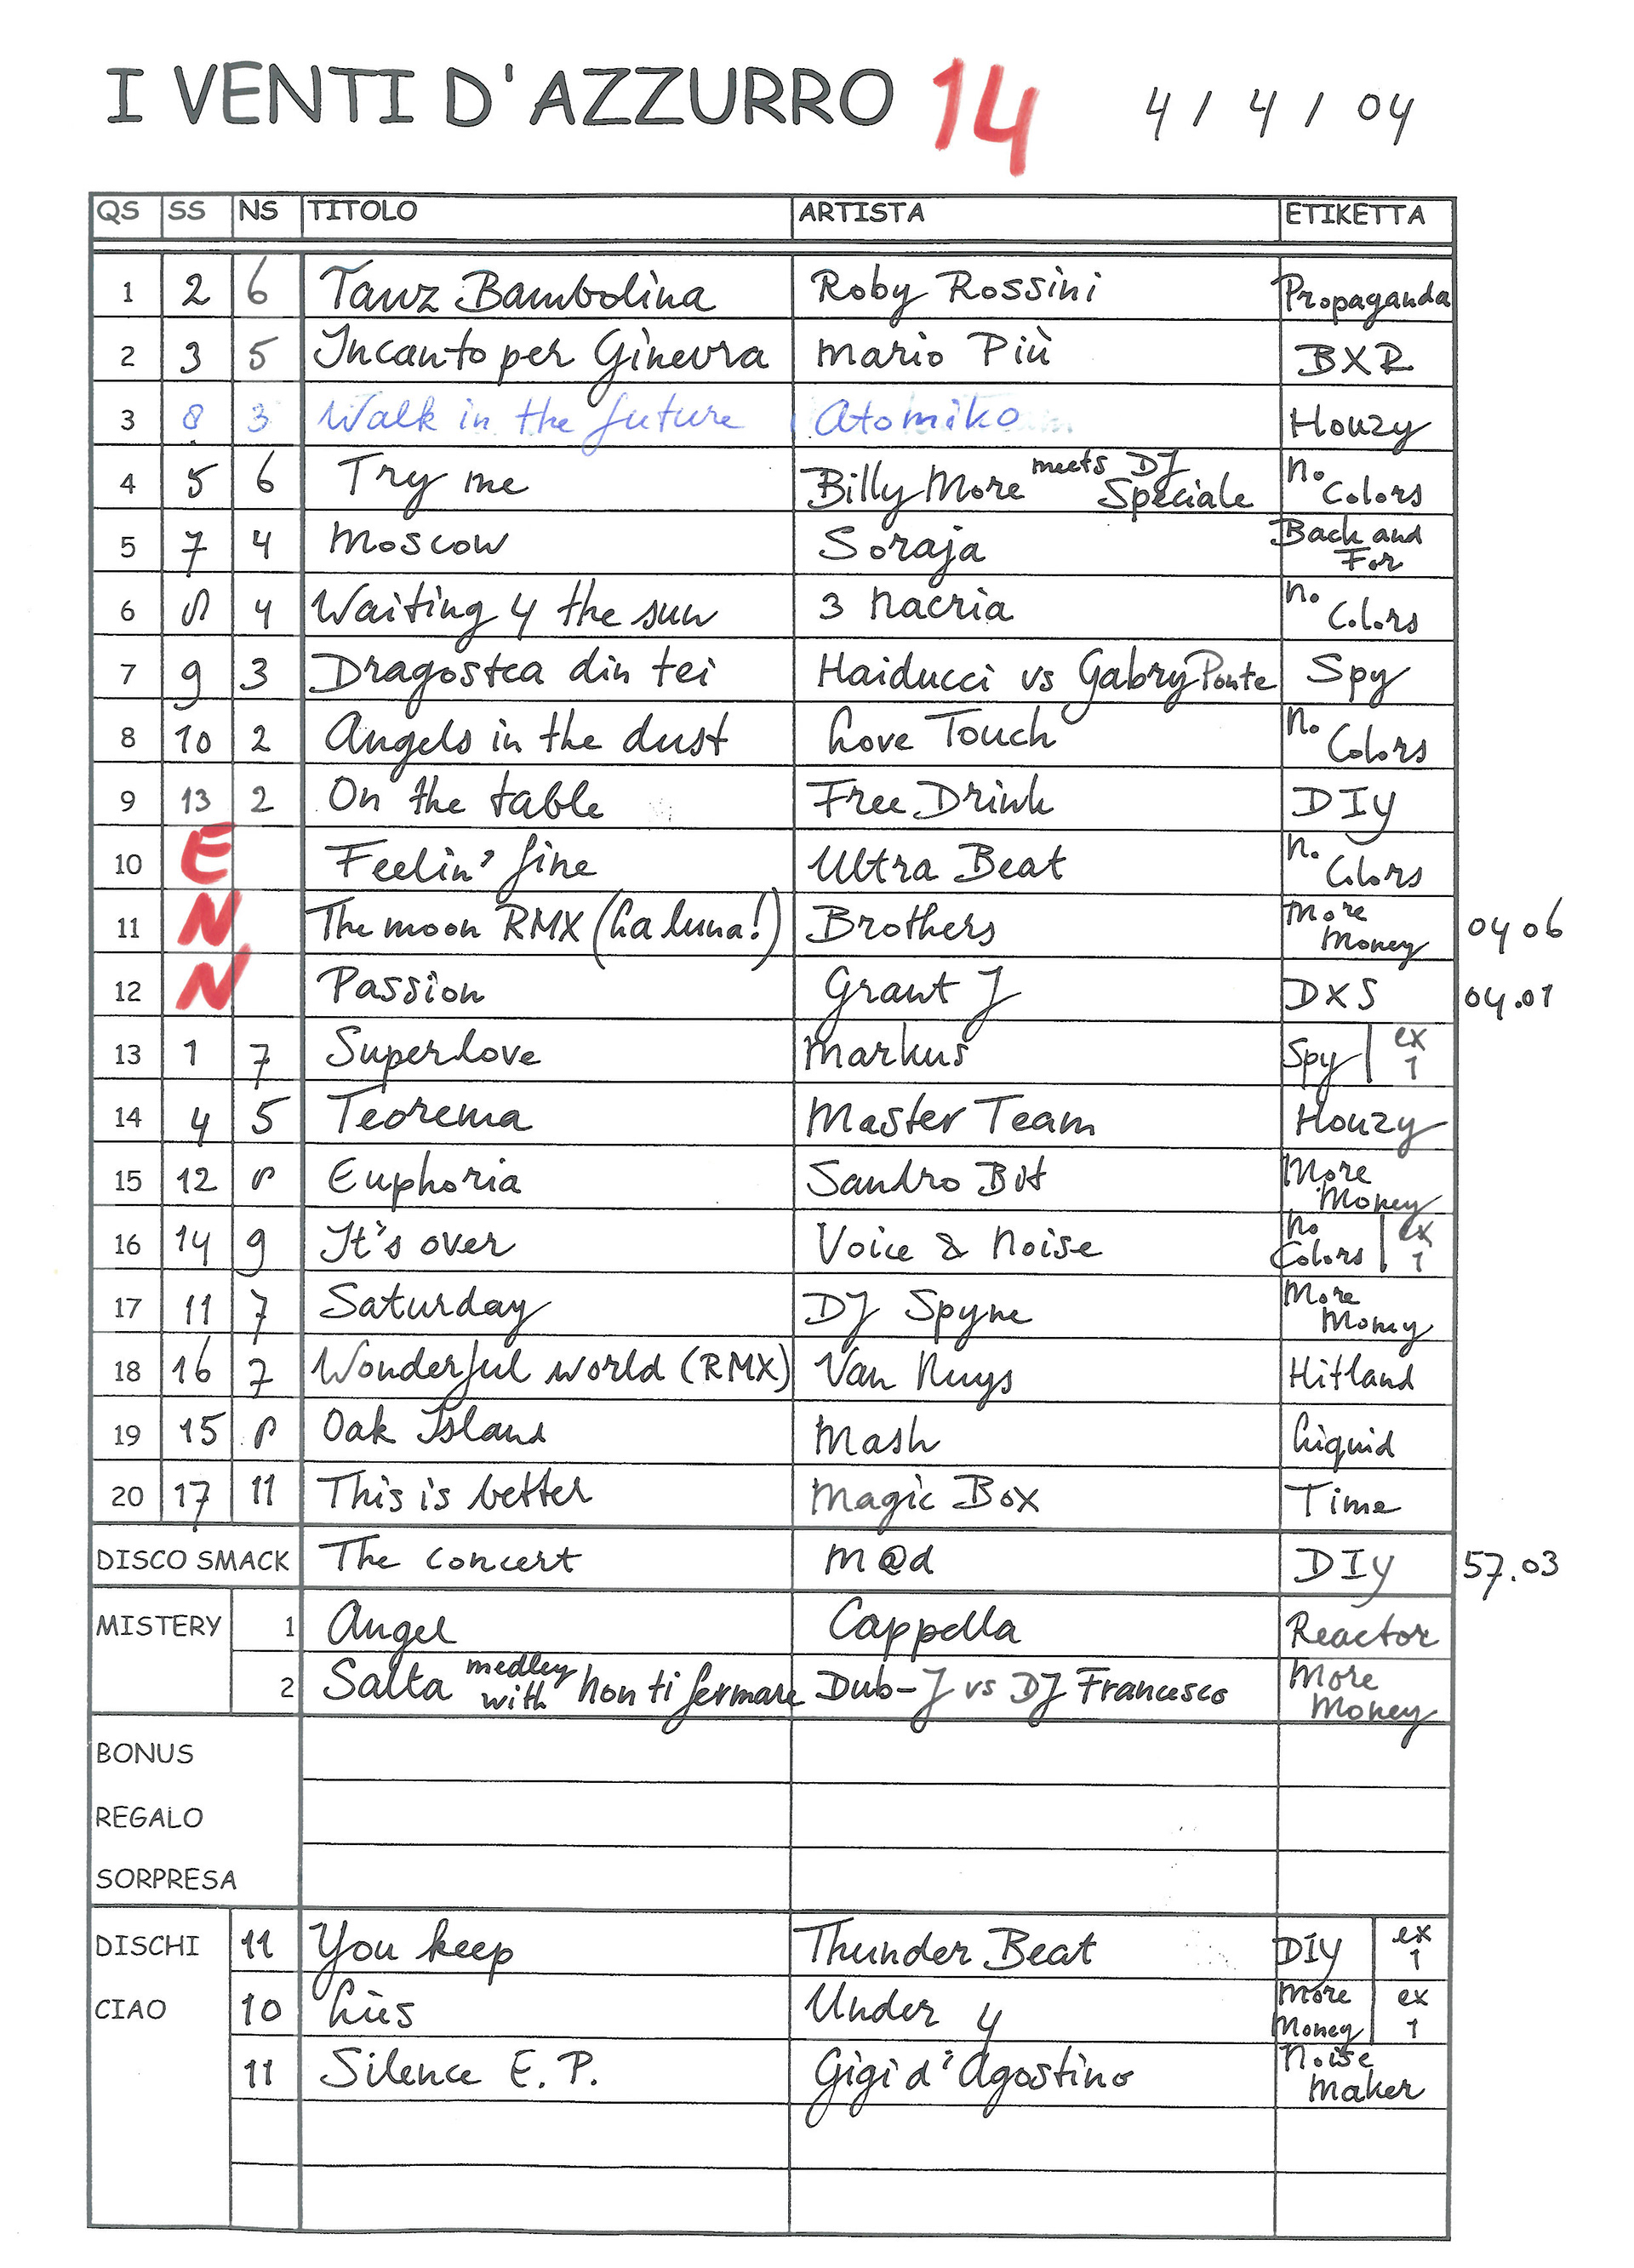 I VENTI D'AZZURRO 14 4/4/04
QS SS NS TITOLO ARTISTA ETIKETTA
1 2 6 Tanz Bambolina Roby Rossini Propaganda
2 3 5 Incanto per Ginevra Mario Più BXR
3 8 3 Walk in the future Atomiko Houzy
4 5 6 Try me Billy More meets DJ Speciale No Colors
5 7 4 Moscow Soraja Back and For
6 4 Waiting 4 the sun 3 Nacria No Colors
7 9 3 Dragostea din tei Haiducci vs Gabry Ponte Spy
8 10 2 Angels in the dust Love Touch No Colors
9 13 2 On the table Free Drink DIY
10 E Feelin' fine Ultra Beat No Colors
11 N The moon RMX (La luna!) Brothers More Money 04 06
12 N Passion Grant J DXS 04.01
13 1 7 Superlove Markus Spy ex 1
14 4 5 Teorema Master Team Houzy
15 12 Euphoria Sandro Bit More Money
16 14 9 It's over Voice & Noise No Colors ex 1
17 11 7 Saturday DJ Spyne More Money
18 16 7 Wonderful world (RMX) Van Nuys Hitland
19 15 Oak Island Mash Liquid
20 17 11 This is better Magic Box Time
DISCO SMACK The concert M@d DIY 57.03
MISTERY 1 Angel Cappella Reactor
2 Salta medley with Non ti fermare Dub-J vs DJ Francesco More Money
BONUS
REGALO
SORPRESA
DISCHI 11 You keep Thunder Beat DIY ex 1
CIAO 10 Lies Under 4 More Money ex 1
11 Silence E.P. Gigi d'Agostino Noise Maker